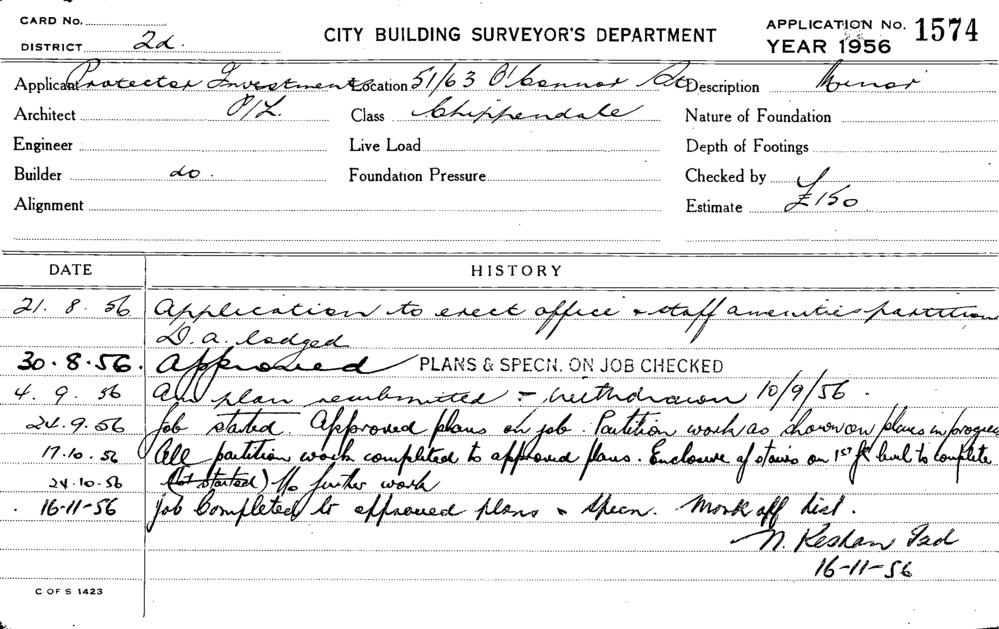 CARD No.
DISTRICT 2d.
CITY BUILDING SURVEYOR'S DEPARTMENT
APPLICATION No. 1574
YEAR 1956
Applicant Protector Investments Location 51/63 O'Connor St Description Minor
Architect P/L. Class Chippendale Nature of Foundation
Engineer Live Load Depth of Footings
Builder do. Foundation Pressure Checked by
Alignment Estimate £150
DATE HISTORY
21. 8. 56 Application to erect office & staff amenities partition
D.A. lodged
30.8.56. Approved PLANS & SPECN. ON JOB CHECKED
4. 9. 56 plan resubmitted - Withdrawn 10/9/56.
24.9.56 Job stated. Approved plans on job. Partition work as shown on plans in progress
17.10.56 All partition work completed to approved plans. Enclosure of stairs on 1st fl. level to complete
24.10.56 (Not started) No further work
16-11-56 Job Completed to approved plans & specn. Mark off list.
N.
16-11-56
C OF S 1423